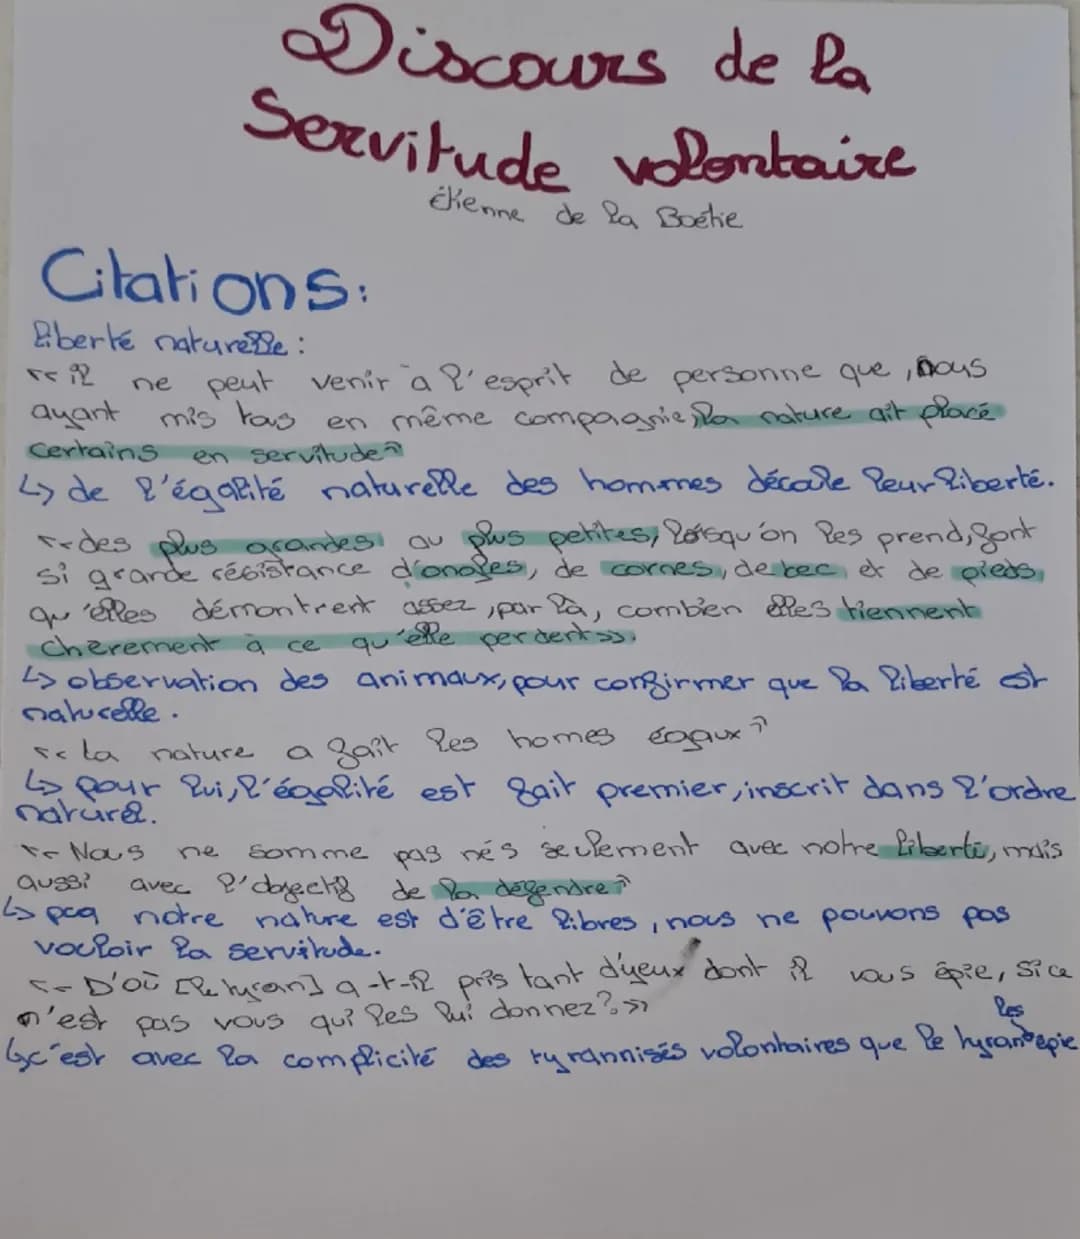 Discours de la
Servitude volontaire
Étienne de la Boétie
Citations:
liberté naturelle :
<< il ne peut venir à l'esprit de personne que, nous
ayant mis tous en même compagnie, la nature ait placé
certains en servitude >>
↳ de l'égalité naturelle des hommes décole leur liberté.
<< des plus grandes au plus petites, lorsqu'on les prend, font
si grande résistance d'ongles, de cornes, de bec et de pieds,
qu'elles démontrent assez, par là, combien elles tiennent
cherement à ce qu'elle perdent >>.
↳ observation des animaux, pour confirmer que la liberté est
naturelle.
<< La nature a fait les homes égaux >>
↳ pour lui, l'égalité est fait premier, inscrit dans l'ordre
naturel.
<< Nous ne somme pas nés seulement avec notre liberté, mais
aussi avec l'objectif de la défendre >>
↳ pcq notre nature est d'être libres, nous ne pouvons pas
vouloir la servitude.
<< D'où [le tyran] a-t-il pris tant d'yeux dont il vous épie, si ce
n'est pas vous qui les lui donnez? >>
↳ c'est avec la complicité des tyrannisés volontaires que le tyran les épie